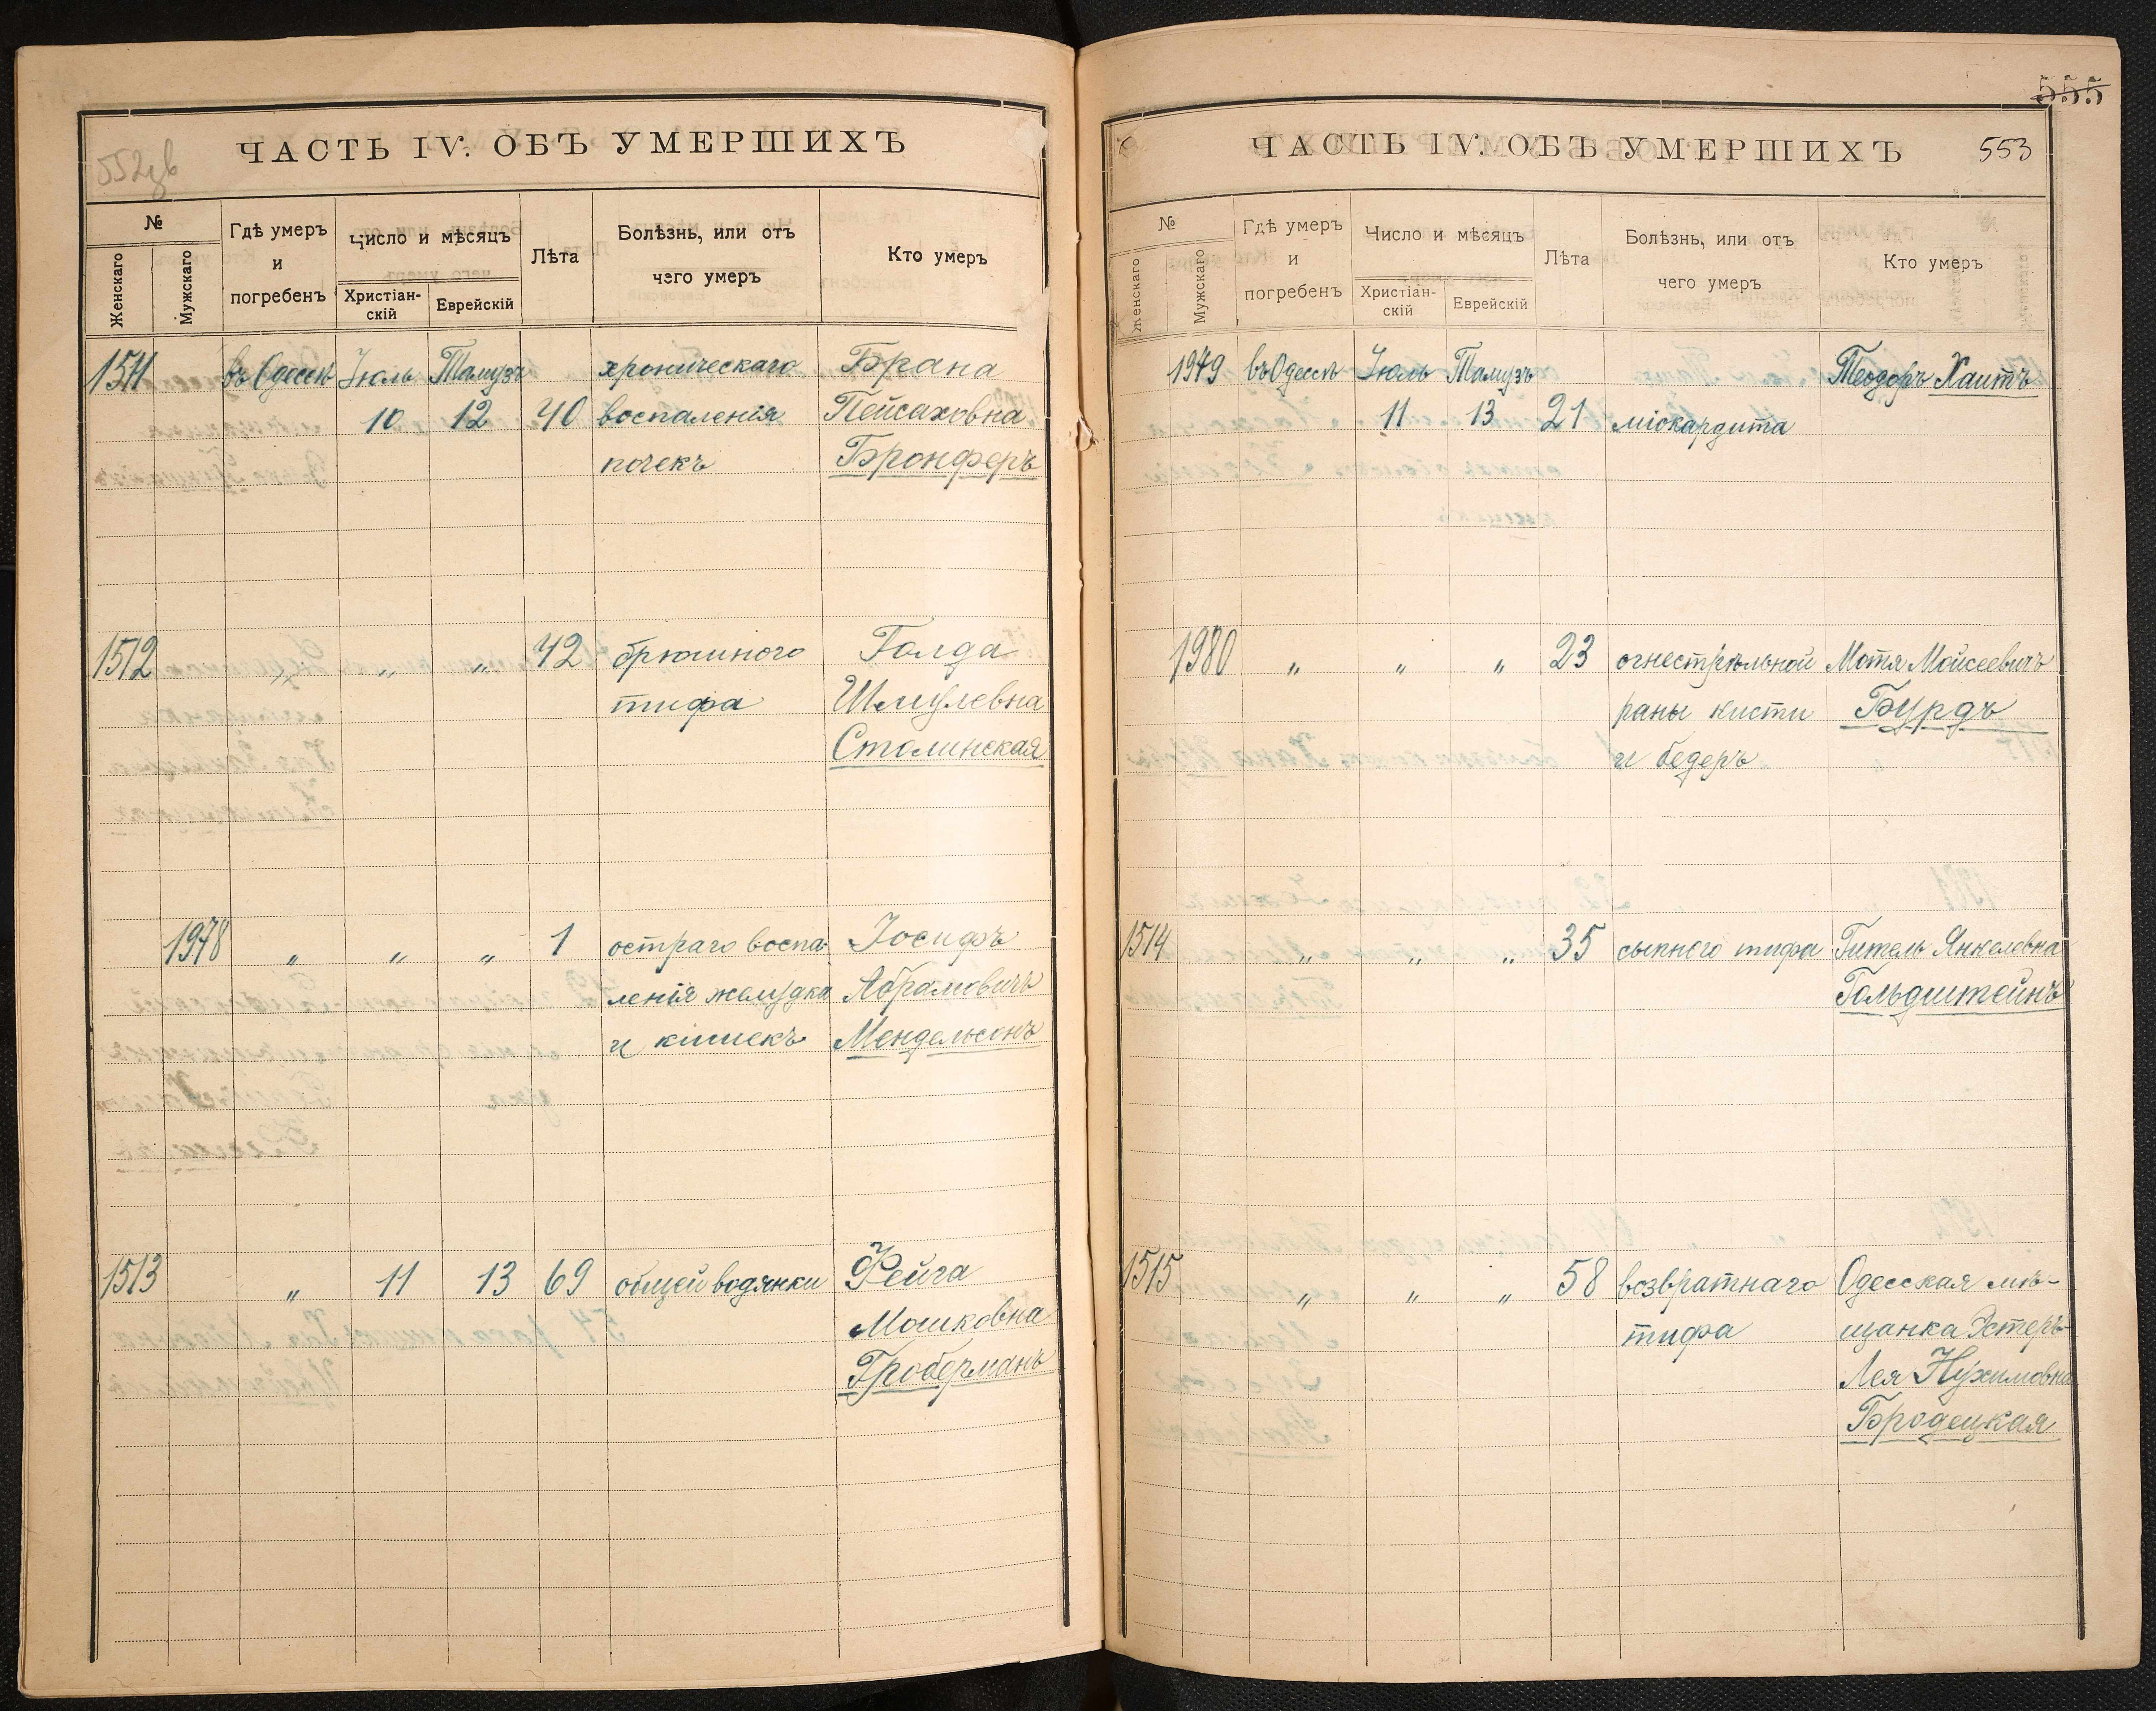 552 об
ЧАСТЬ IV. ОБЪ УМЕРШИХЪ
№
Женскаго
Мужскаго
Гдѣ умеръ
и
погребенъ
Число и мѣсяцъ
Христіан-
скій
Еврейскій
Лѣта
Болѣзнь, или отъ
чего умеръ
Кто умеръ
1511 въ Одессѣ Іюль Тамузъ хроническаго Брана
10 12 40 воспаленія Пейсаховна
почекъ Бронферъ
1512 „ „ „ 42 брюшного Голда
тифа Шмулевна
Столинская
1978 „ „ „ 1 остраго воспа- Іосифъ
ленія желудка Абрамовичъ
и кишекъ Мендельсонъ
1513 „ 11 13 69 общей водянки Фейга
Мошковна
Гроберманъ
555
ЧАСТЬ IV. ОБЪ УМЕРШИХЪ 553
№
Женскаго
Мужскаго
Гдѣ умеръ
и
погребенъ
Число и мѣсяцъ
Христіан-
скій
Еврейскій
Лѣта
Болѣзнь, или отъ
чего умеръ
Кто умеръ
1979 въ Одессѣ Іюль Тамузъ Теодоръ Хаитъ
11 13 21 міокардита
1980 „ „ „ 23 огнестрѣльной Мотя Мойсеевичъ
раны кисти Бурдъ
и бедеръ
1514 „ „ „ 35 сыпного тифа Гитель Янкелевна
Гольдштейнъ
1515 „ „ „ 58 возвратнаго Одесская мѣ-
тифа щанка Эстеръ-
Лея Нухимовна
Бродецкая